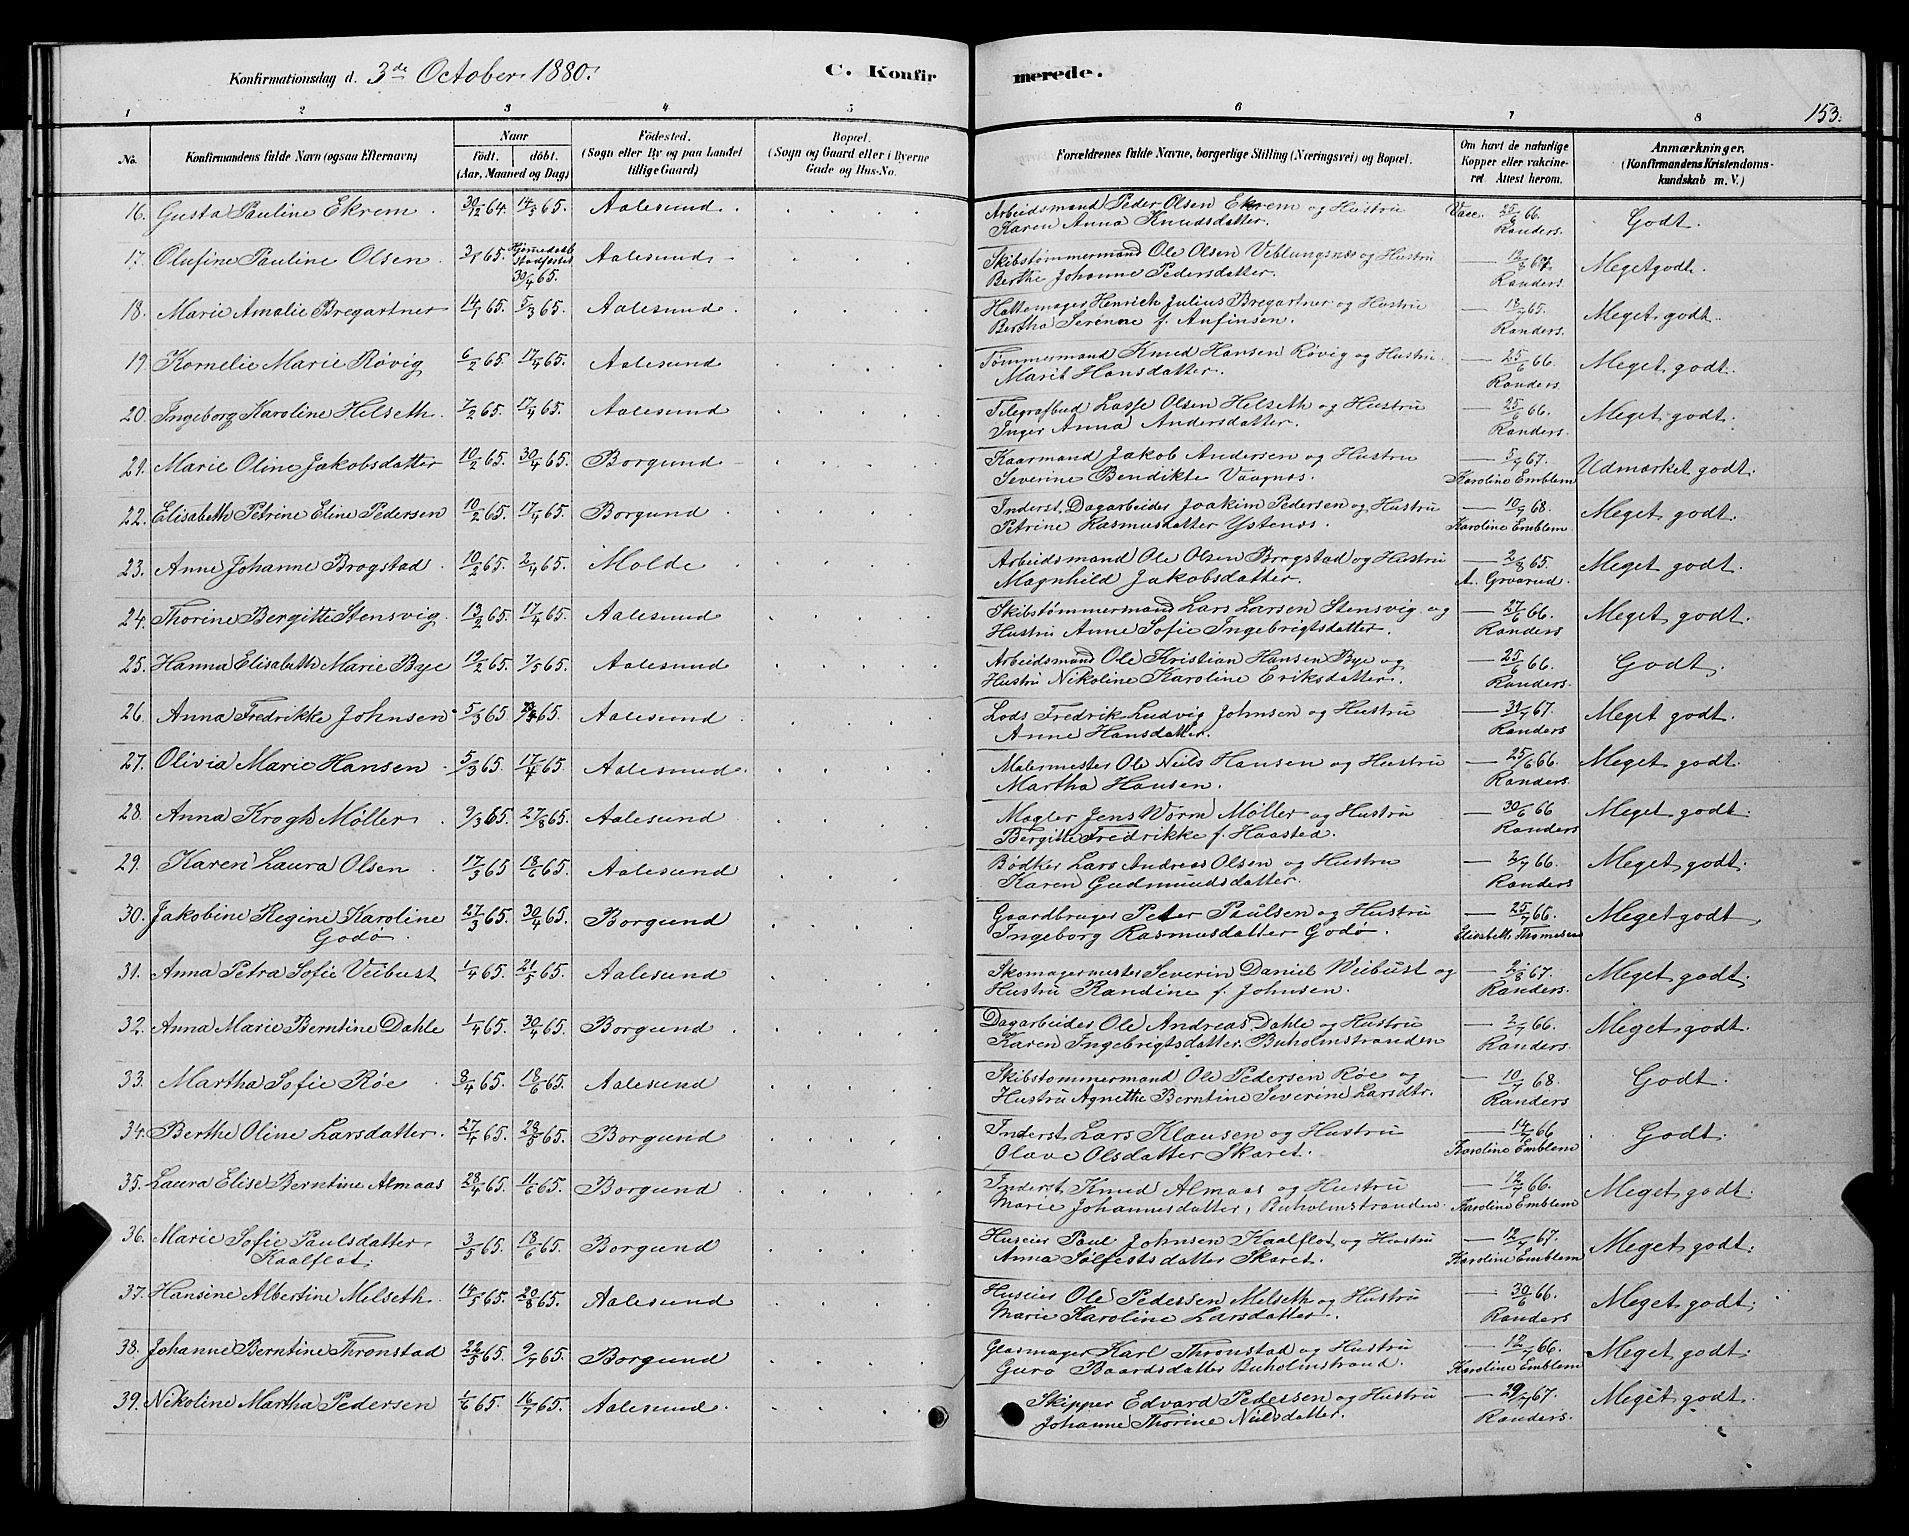 Konfirmationsdag d. 3de October 1880. C. Konfirmerede. 153.
1 2 3 4 5 6 7 8
No. Konfirmandens fulde Navn (ogsaa Efternavn) Naar födt. döbt. (Aar, Maaned og Dag) Födested. (Sogn eller By og paa Landet tillige Gaard) Bopæl. (Sogn og Gaard eller i Byerne Gade og Hus-No. Forældrenes fulde Navne, borgerlige Stilling (Næringsvei) og Bopæl. Om havt de naturlige Kopper eller vakcineret. Attest herom. Anmærkninger. (Konfirmandens Kristendomskundskab m. V.)
16. Gusta Pauline Ekrem 30/12 64. 14/3 65. Aalesund. Arbeidsmand Peder Olsen Ekrem og Hustru Vacc. 25/6 66. Godt.
Karen Anna Knudsdatter. Randers.
17. Olufine Pauline Olsen 3/1 65. Hjemmedøbt Stadfæstet 30/4 65. Aalesund Skibstømmermand Ole Olsen Veblungsnæs og Hustru — 12/8 67. Meget godt.
Berthe Johanne Pedersdatter. Randers.
18. Marie Amalie Bregartner 14/1 65. 5/3 65. Aalesund. Hattemager Henrich Julius Bregartner og Hustru — 18/7 65. Meget godt.
Bertha Serenne f. Anfinsen. Randers.
19. Kornelie Marie Røvig 6/2 65. 17/4 65. Aalesund Tømmermand Knud Hansen Røvig og Hustru — 25/6 66. Meget godt.
Marit Hansdatter. Randers.
20. Ingeborg Karoline Helseth. 7/2 65. 17/4 65. Aalesund Telegrafbud Lasse Olsen Helseth og Hustru — 25/6 66. Meget godt.
Inger Anna Andersdatter. Randers.
21. Marie Oline Jakobsdatter 10/2 65. 30/4 65. Borgund Kaarmand Jakob Andersen og Hustru — 5/7 67. Udmærket godt.
Severine Bendikte Vaagnæs. Karoline Emblem
22. Elisabeth Petrine Eline Pedersen 10/2 65. 17/4 65. Borgund Inderst, Dagarbeider Joakim Pedersen og Hustru — 10/7 68. Meget godt.
Petrine Rasmusdatter Ystenes. Karoline Emblem.
23. Anne Johanne Brogstad. 10/2 65. 2/4 65. Molde Arbeidsmand Ole Olsen Brogstad og Hustru — 2/8 65. Meget godt.
Magnhild Jakobsdatter. A. Grvarud.
24. Thorine Bergitte Stensvig. 13/2 65. 17/4 65. Aalesund. Skibstømmermand Lars Larsen Stensvig og — 27/6 66. Meget godt.
Hustru Anne Sofie Ingebrigtsdatter. Randers
25. Hanna Elisabeth Marie Bye 19/2 65. 7/5 65. Aalesund Arbeidsmand Ole Kristian Hansen Bye og — 25/6 66. Godt.
Hustru Nikoline Karoline Eriksdatter. Randers.
26. Anna Fredrikke Johnsen 5/3 65. 65. Aalesund Lods Fredrik Ludvig Johnsen og Hustru — 67. Meget godt.
Anne Hansdatter. Randers
27. Olivia Marie Hansen 5/3 65. 17/4 65. Aalesund Malermester Ole Neils Hansen og Hustru — 25/6 66. Meget godt.
Martha Hansen. Randers
28. Anna Krogh Møller 9/3 65. 27/8 65. Aalesund Mægler Jens Worm Møller og Hustru — 30/6 66 Meget godt.
Bergitte Fredrikke f. Haasted. Randers
29. Karen Laura Olsen 17/3 65 18/6 65. Aalesund Bødker Lars Andreas Olsen og Hustru — 2/7 66. Meget godt.
Karen Gudmundsdatter. Randers
30. Jakobine Regine Karoline 27/3 65. 30/4 65. Borgund Gaardbruger Peter Paulsen og Hustru — 25/7 66. Meget godt
Godø. Ingeborg Rasmusdatter Godø. Elisabeth Thomesen
31. Anna Petra Sofie Veibust 1/4 65. 21/5 65. Aalesund Skomagermester Severin Daniel Weibust og — 2/8 67. Meget godt.
Hustru Randine f. Johnsen. Randers.
32. Anna Marie Berntine Dahle 1/4 65. 30/4 65. Borgund. Dagarbeider Ole Andreas Dahle og Hustru — 2/7 66. Meget godt.
Karen Ingebrigtsdatter. Buholmstranden Randers.
33. Martha Sofie Røe 8/4 65. 18/6 65. Aalesund Skibstommermand Ole Pedersen Røe og — 10/7 68. Godt.
Hustru Agnethe Berntine Severine Larsdtr. Randers
34. Berthe Oline Larsdatter. 27/4 65. 28/5 65. Borgund Inderst Lars Klausen og Hustru — 14/7 66. Godt.
Olave Olsdatter Skaret. Karoline Emblem
35. Laura Elise Berntine Almaas 28/4 65. 11/6 65. Borgund Inderst Knud Almaas og Hustru — 12/7 66. Meget godt.
Marie Johannesdatter, Buholmstranden. Karoline Emblem
36. Marie Sofie Paulsdatter 3/5 65. 18/6 65. Borgund Huseier Paul Johnsen Kaalflot og Hustru — 12/7 67. Meget godt.
Kaalflot. Anna Solfestsdatter Skaret. Karoline Emblem
37. Hansine Albertine Melseth. 14/5 65. 20/8 65. Aalesund Huseier Ole Pedersen Melseth og Hustru — 30/6 66. Meget godt.
Marie Karoline Larsdatter. Randers
38. Johanne Berntine Thronstad 22/5 65. 9/7 65. Borgund Glasmager Karl Thronstad og Hustru — 12/7 66. Meget godt.
Guro Baardsdatter Buholmstrand. Karoline Emblem
39. Nikoline Martha Pedersen 1/6 65. 16/7 65. Aalesund. Skipper Edvard Pedersen og Hustru — 29/7 67. Meget godt.
Johanne Thorine Nielsdatter. Randers.